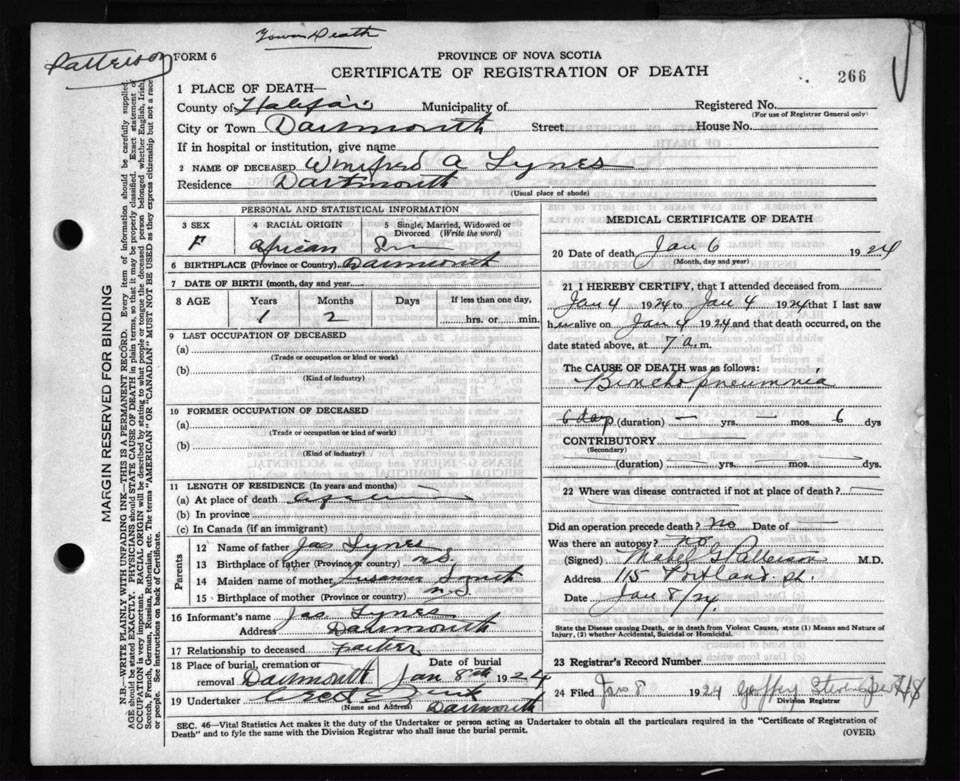 Town Death
Patterson
FORM 6
PROVINCE OF NOVA SCOTIA
CERTIFICATE OF REGISTRATION OF DEATH
266
1 PLACE OF DEATH—
County of Halifax Municipality of Registered No.
(For use of Registrar General only)
City or Town Dartmouth Street House No.
If in hospital or institution, give name
2 NAME OF DECEASED Winifred A Lynes
Residence Dartmouth
(Usual place of abode)
MARGIN RESERVED FOR BINDING
N.B.—WRITE PLAINLY WITH UNFADING INK—THIS IS A PERMANENT RECORD. Every item of information should be carefully supplied.
AGE should be stated EXACTLY. PHYSICIANS should STATE CAUSE OF DEATH in plain terms, so that it may be properly classified. Exact statement of
OCCUPATION is very important. RACIAL ORIGIN will be described by stating to what people or tongue the deceased person belonged whether English, Irish,
Scotch, French, German, Russian, Ruthenian, etc. The terms "AMERICAN" OR "CANADIAN" MUST NOT BE USED as they express citizenship but not a race
or people. See instructions on back of Certificate.
PERSONAL AND STATISTICAL INFORMATION
3 SEX 4 RACIAL ORIGIN 5 Single, Married, Widowed or
Divorced (Write the word)
F African
6 BIRTHPLACE (Province or Country) Dartmouth
7 DATE OF BIRTH (month, day and year)
8 AGE Years Months Days If less than one day,
1 2 hrs. or min.
9 LAST OCCUPATION OF DECEASED
(a)
(Trade or occupation or kind or work)
(b)
(Kind of industry)
10 FORMER OCCUPATION OF DECEASED
(a)
(Trade or occupation or kind of work)
(b)
(Kind of industry)
11 LENGTH OF RESIDENCE (In years and months)
(a) At place of death
(b) In province
(c) In Canada (if an immigrant)
Parents
12 Name of father Jas Lynes
13 Birthplace of father (Province or country) N.S.
14 Maiden name of mother Smith
15 Birthplace of mother (Province or country) N.S.
16 Informant's name Jas Lynes
Address Dartmouth
17 Relationship to deceased Father
18 Place of burial, cremation or Date of burial
removal Dartmouth Jan 8th 1924
19 Undertaker
(Name and Address) Dartmouth
MEDICAL CERTIFICATE OF DEATH
20 Date of death Jan 6 1924
(Month, day and year)
21 I HEREBY CERTIFY, that I attended deceased from
Jan 4 1924 to Jan 4 1924 that I last saw
her alive on Jan 4 1924 and that death occurred, on the
date stated above, at 7 a.m.
The CAUSE OF DEATH was as follows:
Bronchopneumonia
6 days (duration) — yrs. — mos. 6 dys
CONTRIBUTORY
(Secondary)
(duration) yrs. mos. dys
22 Where was disease contracted if not at place of death?
Did an operation precede death? No Date of
Was there an autopsy? No
(Signed) Mabel G Patterson M.D.
Address 115 Portland St.
Date Jan 8/24.
State the Disease causing Death, or in death from Violent Causes, state (1) Means and Nature of
Injury, (2) whether Accidental, Suicidal or Homicidal.
23 Registrar's Record Number
24 Filed Jan 8 1924
Division Registrar
SEC. 46—Vital Statistics Act makes it the duty of the Undertaker or person acting as Undertaker to obtain all the particulars required in the "Certificate of Registration of
Death" and to fyle the same with the Division Registrar who shall issue the burial permit. (OVER)